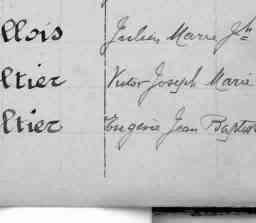 llois Julien Marie Jh
ltier Victor Joseph Marie
ltier Eugène Jean Baptist